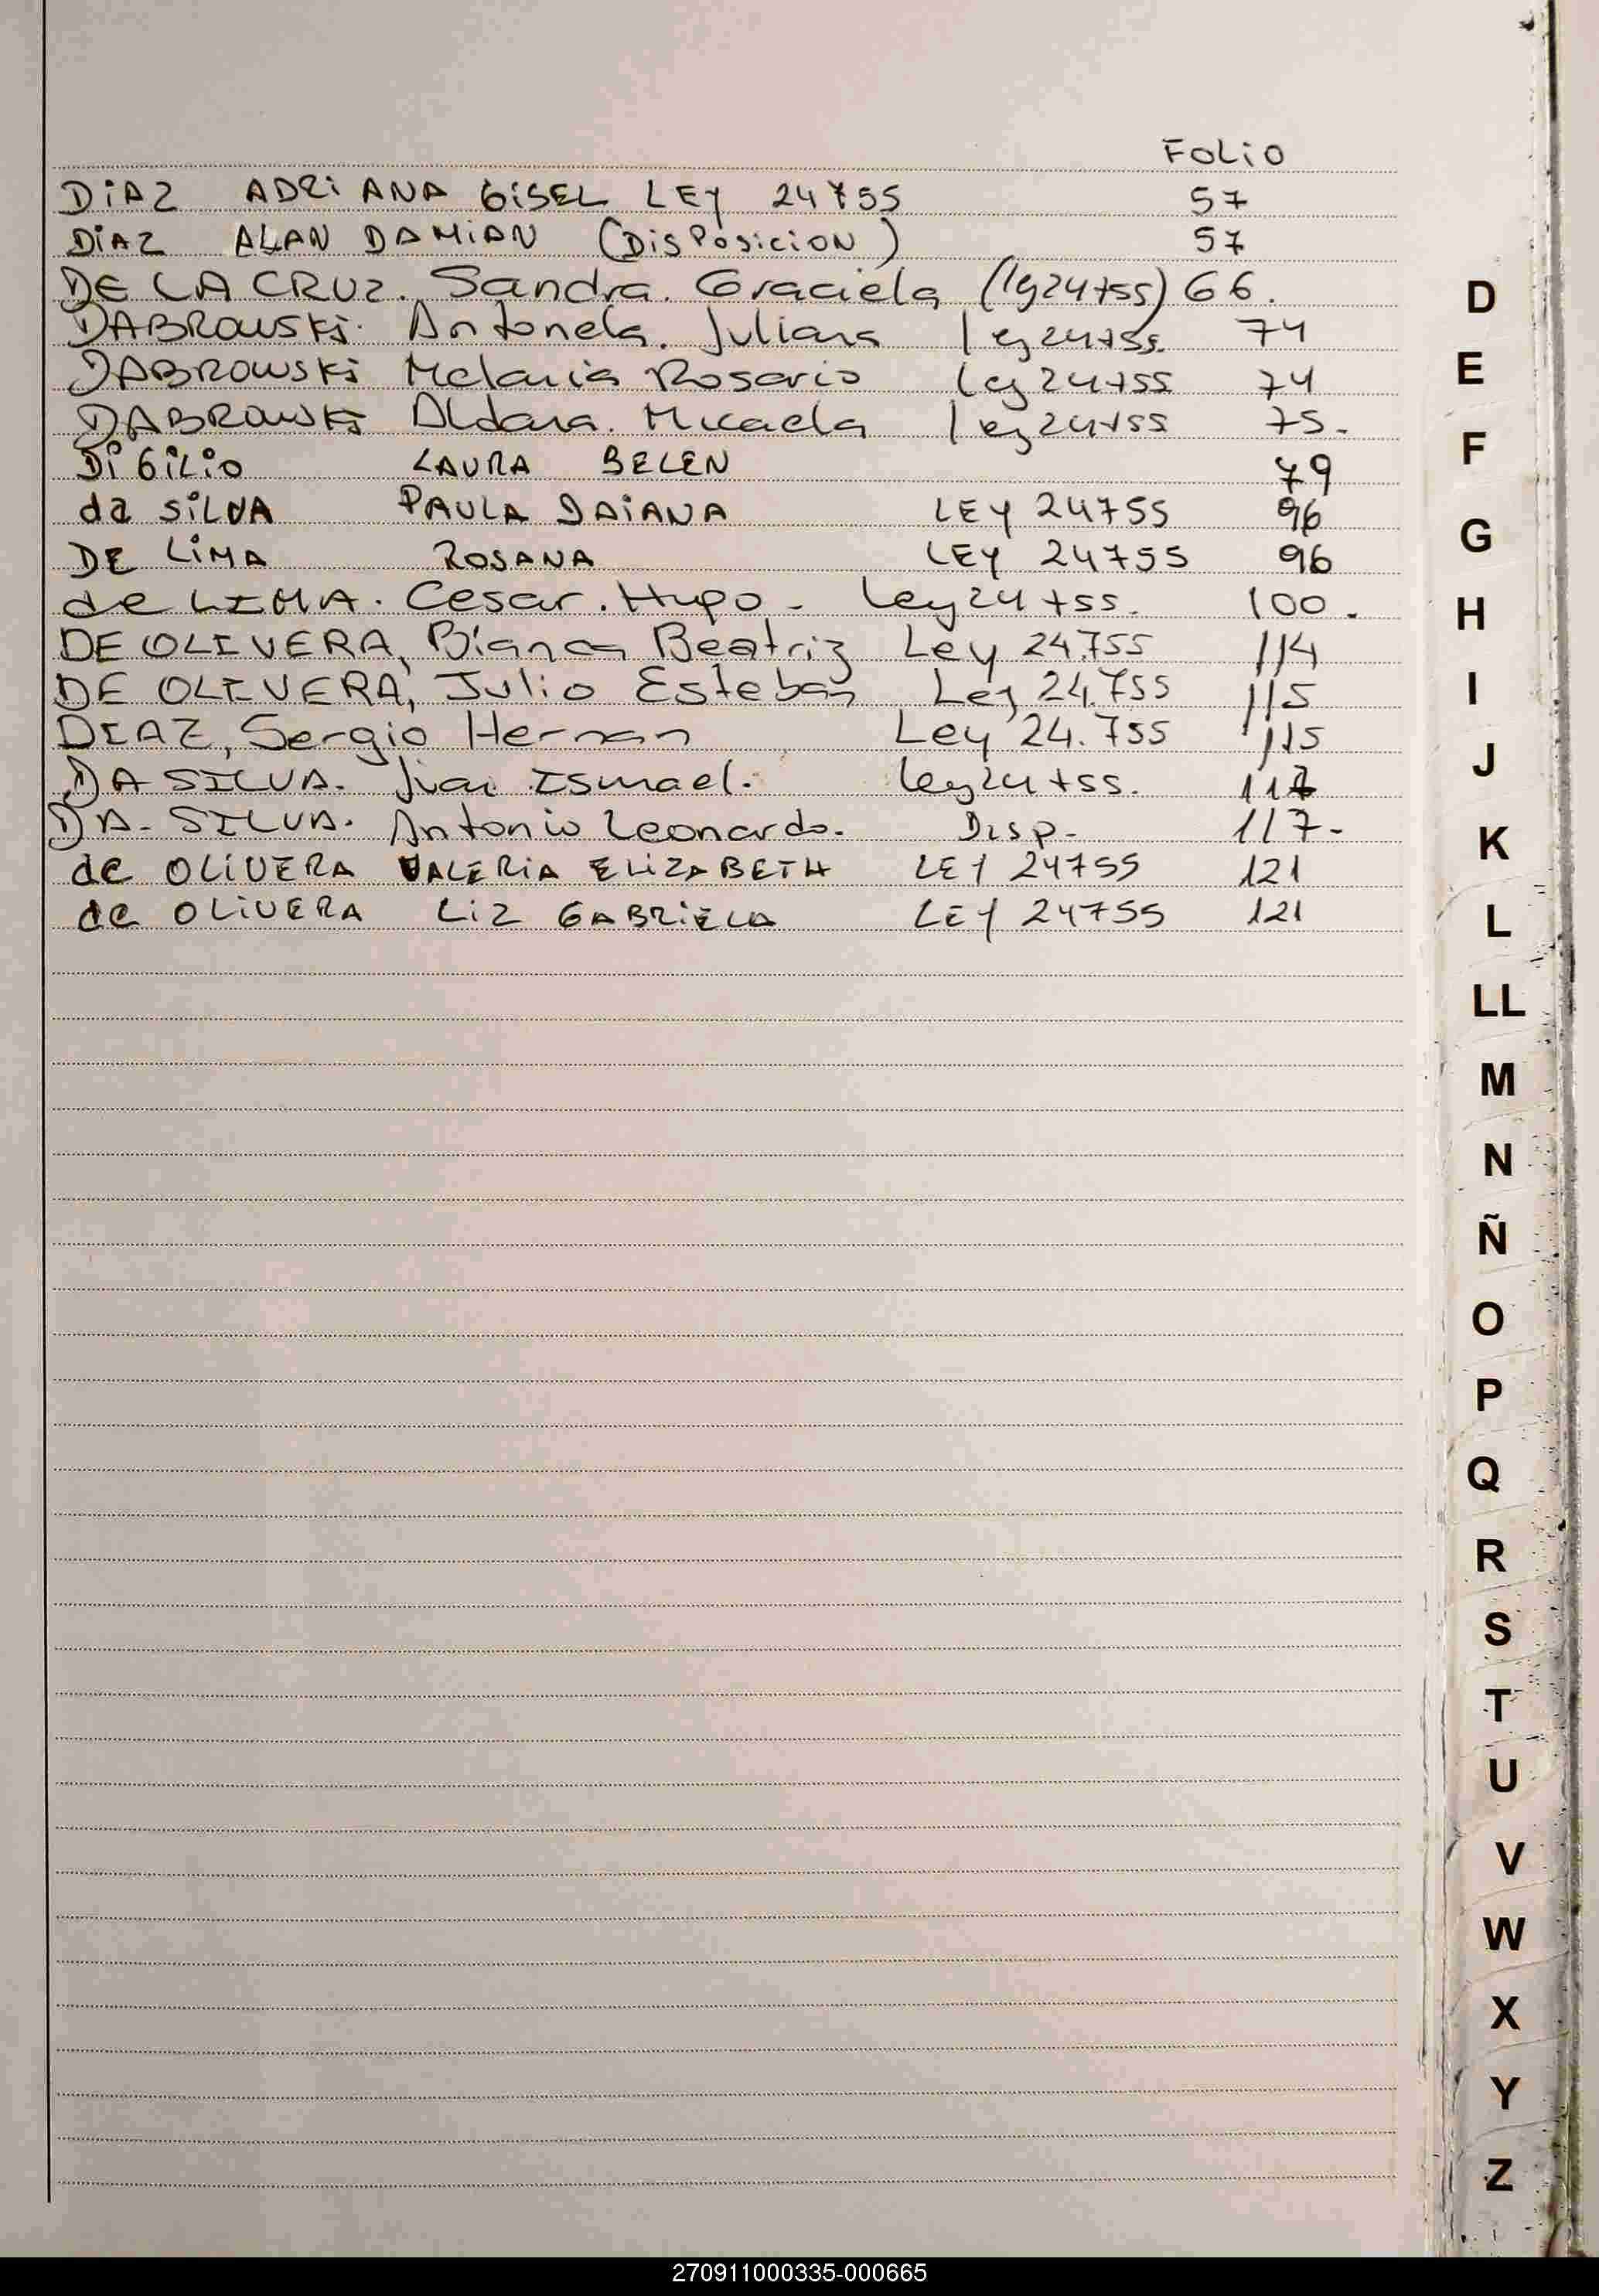 FOLIO
DIAZ ADRIANA GISEL LEY 24755 57
DIAZ ALAN DAMIAN (DISPOSICION) 57
DE LA CRUZ. Sandra. Graciela (ley 24755) 66.
DABROWSKI. Antonela. Juliana ley 24755. 74
DABROWSKI Melania Rosario ley 24755 74
DABROWSKI Aldana. Micaela ley 24755 75.
DI GILIO LAURA BELEN 79
da SILVA PAULA DAIANA LEY 24755 96
DE LIMA ROSANA LEY 24755 96
de LIMA. Cesar. Hugo - Ley 24755. 100.
DE OLIVERA, Bianca Beatriz Ley 24.755 114
DE OLIVERA, Julio Esteban Ley 24.755 115
DIAZ, Sergio Hernan Ley 24.755 115
DA SILVA. Ivan Ismael. Ley 24755. 117
DA-SILVA. Antonio Leonardo. Disp. 117-
de OLIVERA VALERIA ELIZABETH LEY 24755 121
de OLIVERA LIZ GABRIELA LEY 24755 121
D
E
F
G
H
I
J
K
L
LL
M
N
Ñ
O
P
Q
R
S
T
U
V
W
X
Y
Z
270911000335-000665